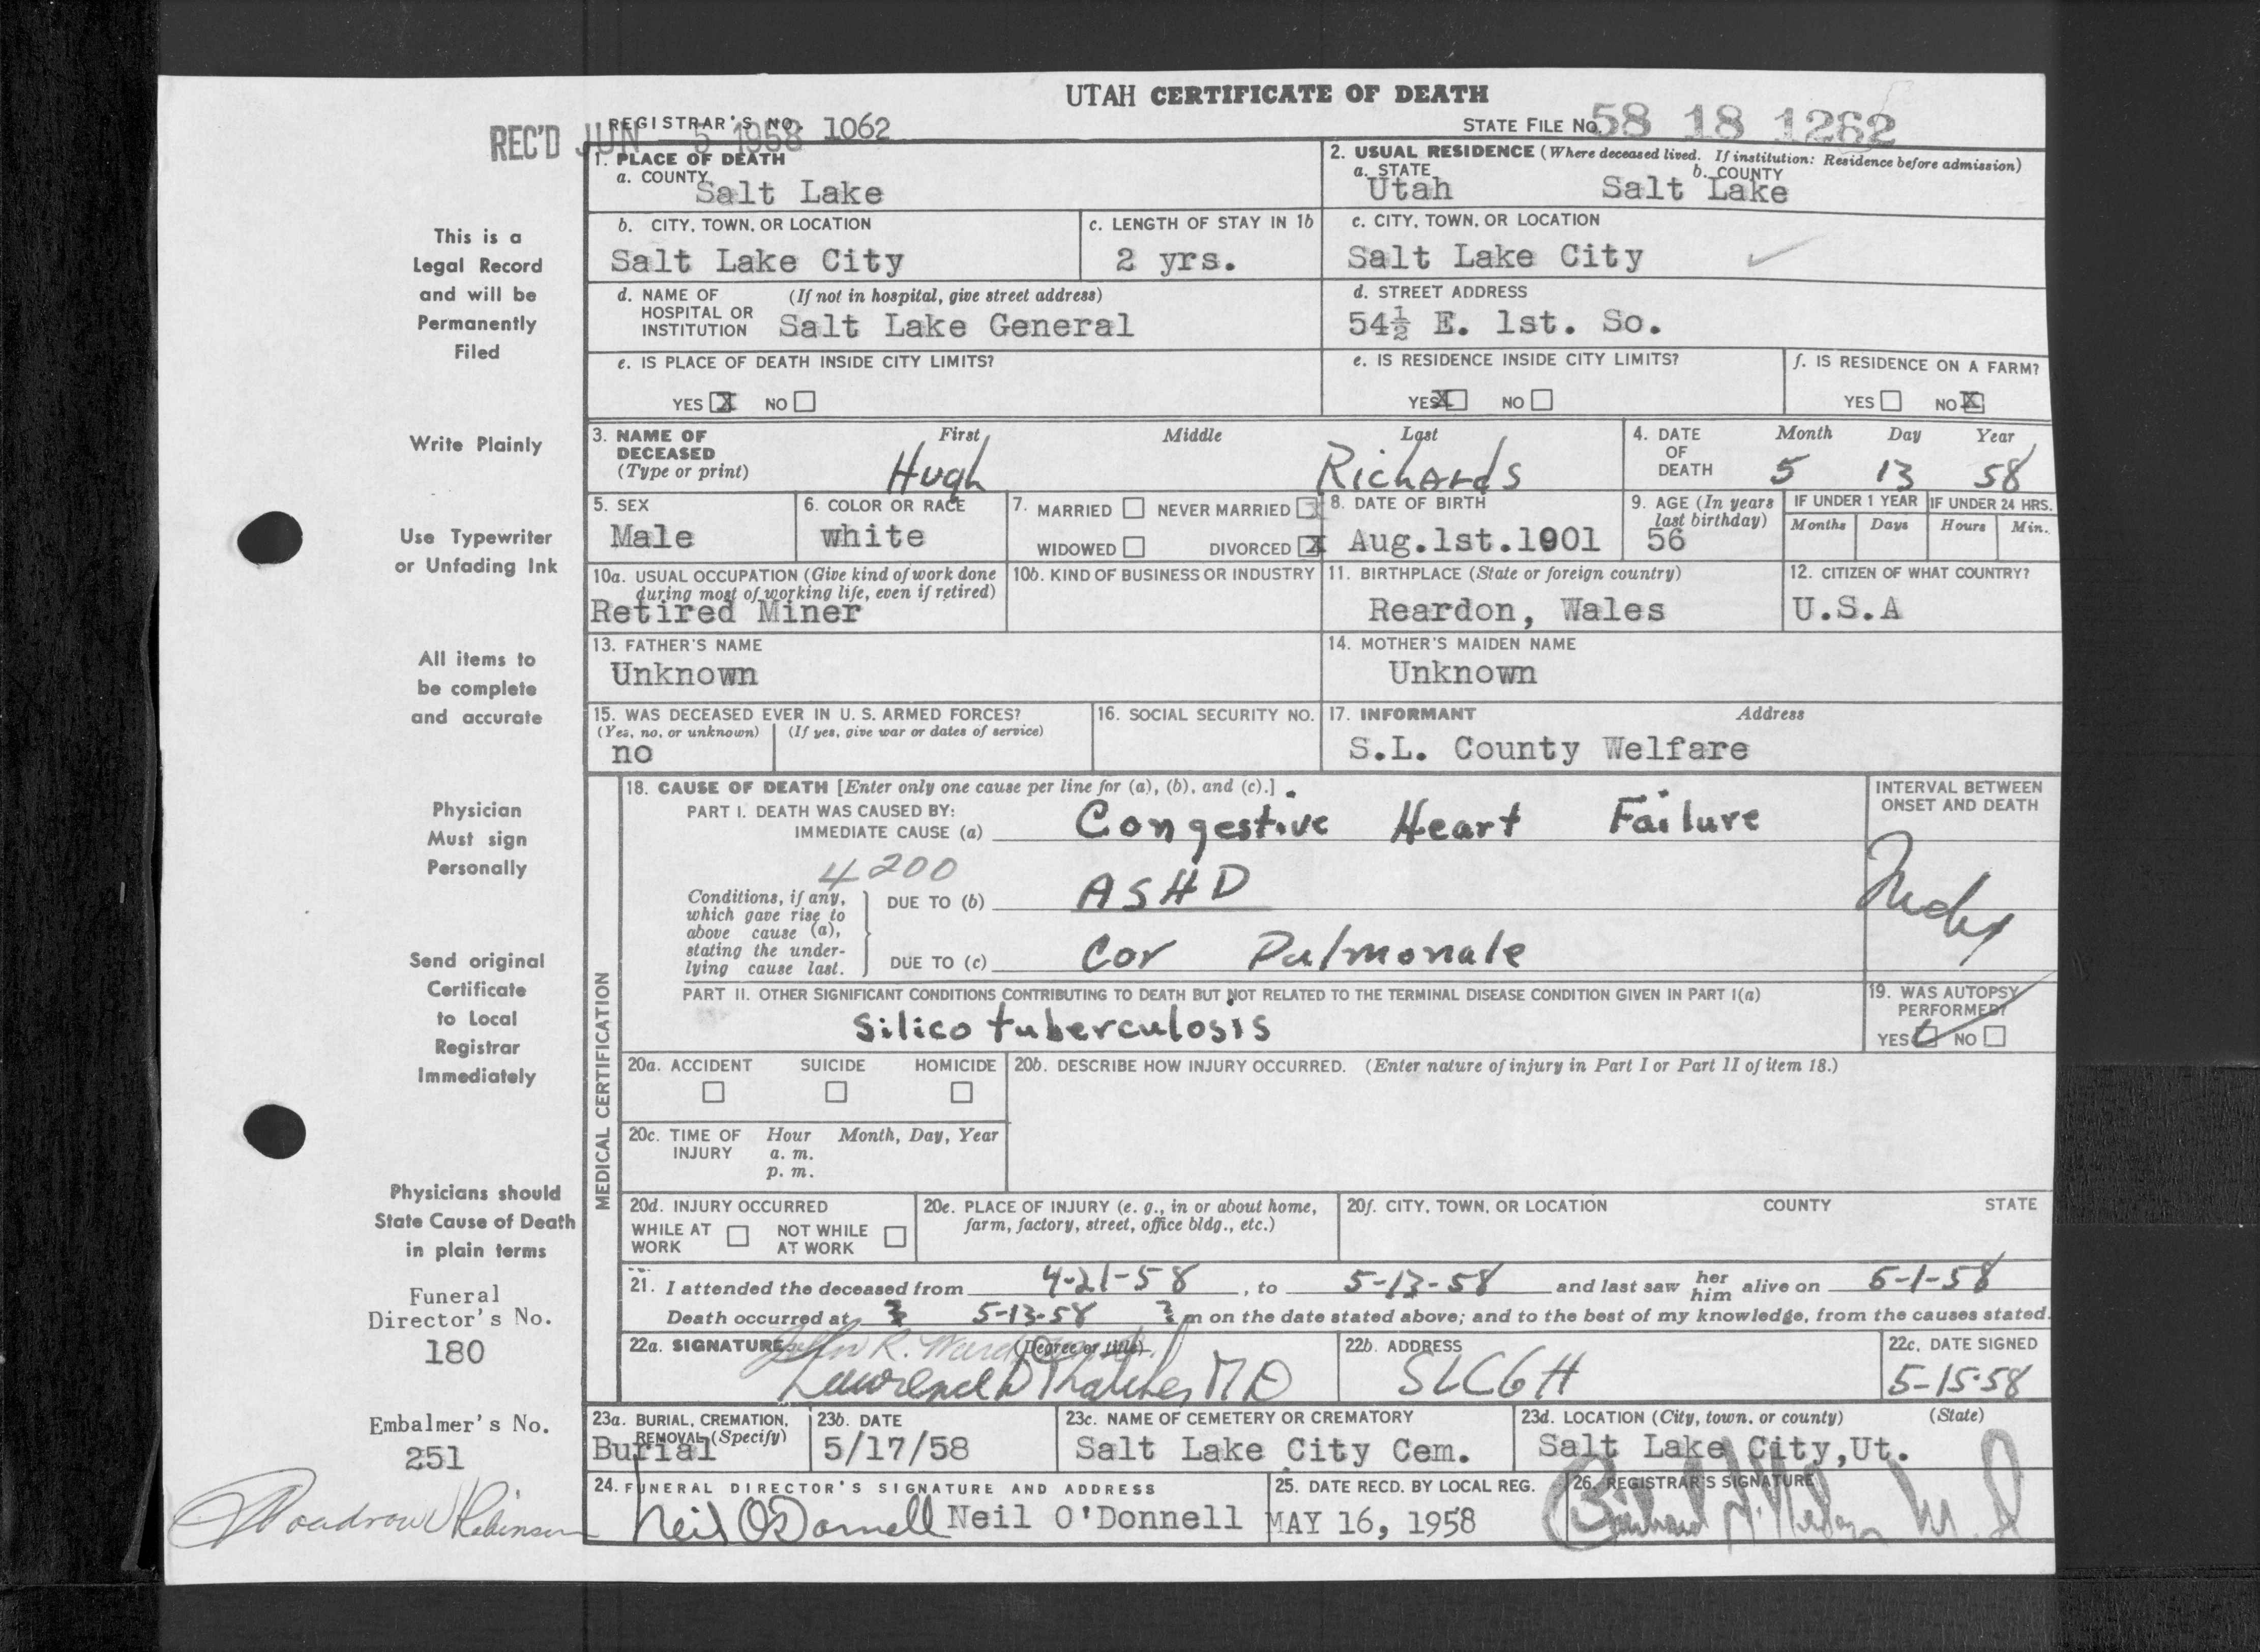 UTAH CERTIFICATE OF DEATH
REC'D JUN 5 1958
REGISTRAR'S NO. 1062
STATE FILE NO. 58 18 1262
1. PLACE OF DEATH
a. COUNTY
Salt Lake
2. USUAL RESIDENCE (Where deceased lived. If institution: Residence before admission)
a. STATE b. COUNTY
Utah Salt Lake
b. CITY, TOWN, OR LOCATION
Salt Lake City
c. LENGTH OF STAY IN 1b
2 yrs.
c. CITY, TOWN, OR LOCATION
Salt Lake City
d. NAME OF HOSPITAL OR INSTITUTION (If not in hospital, give street address)
Salt Lake General
d. STREET ADDRESS
54½ E. 1st. So.
e. IS PLACE OF DEATH INSIDE CITY LIMITS?
YES X NO
e. IS RESIDENCE INSIDE CITY LIMITS?
YES X NO
f. IS RESIDENCE ON A FARM?
YES NO X
3. NAME OF DECEASED (Type or print)
First Middle Last
Hugh Richards
4. DATE OF DEATH
Month Day Year
5 13 58
5. SEX
Male
6. COLOR OR RACE
white
7. MARRIED NEVER MARRIED
WIDOWED DIVORCED X
8. DATE OF BIRTH
Aug.1st.1901
9. AGE (In years last birthday)
56
IF UNDER 1 YEAR
Months Days
IF UNDER 24 HRS.
Hours Min.
10a. USUAL OCCUPATION (Give kind of work done during most of working life, even if retired)
Retired Miner
10b. KIND OF BUSINESS OR INDUSTRY
11. BIRTHPLACE (State or foreign country)
Reardon, Wales
12. CITIZEN OF WHAT COUNTRY?
U.S.A
13. FATHER'S NAME
Unknown
14. MOTHER'S MAIDEN NAME
Unknown
15. WAS DECEASED EVER IN U. S. ARMED FORCES?
(Yes, no, or unknown) (If yes, give war or dates of service)
no
16. SOCIAL SECURITY NO.
17. INFORMANT Address
S.L. County Welfare
MEDICAL CERTIFICATION
18. CAUSE OF DEATH [Enter only one cause per line for (a), (b), and (c).]
PART I. DEATH WAS CAUSED BY:
IMMEDIATE CAUSE (a) Congestive Heart Failure
4200
Conditions, if any, which gave rise to above cause (a), stating the underlying cause last.
DUE TO (b) ASHD
DUE TO (c) Cor Pulmonale
INTERVAL BETWEEN ONSET AND DEATH
PART II. OTHER SIGNIFICANT CONDITIONS CONTRIBUTING TO DEATH BUT NOT RELATED TO THE TERMINAL DISEASE CONDITION GIVEN IN PART I(a)
Silico tuberculosis
19. WAS AUTOPSY PERFORMED?
YES NO
20a. ACCIDENT SUICIDE HOMICIDE
20b. DESCRIBE HOW INJURY OCCURRED. (Enter nature of injury in Part I or Part II of item 18.)
20c. TIME OF INJURY
Hour Month, Day, Year
a. m.
p. m.
20d. INJURY OCCURRED
WHILE AT WORK NOT WHILE AT WORK
20e. PLACE OF INJURY (e. g., in or about home, farm, factory, street, office bldg., etc.)
20f. CITY, TOWN, OR LOCATION COUNTY STATE
21. I attended the deceased from 4-21-58, to 5-13-58 and last saw her him alive on 5-1-58
Death occurred at ? 5-13-58 ? m on the date stated above; and to the best of my knowledge, from the causes stated.
22a. SIGNATURE (Degree or title)
John R. Ward
Lawrence D Thatcher MD
22b. ADDRESS
SLCGH
22c. DATE SIGNED
5-15-58
23a. BURIAL, CREMATION, REMOVAL (Specify)
Burial
23b. DATE
5/17/58
23c. NAME OF CEMETERY OR CREMATORY
Salt Lake City Cem.
23d. LOCATION (City, town, or county) (State)
Salt Lake City, Ut.
24. FUNERAL DIRECTOR'S SIGNATURE AND ADDRESS
Neil O'Donnell Neil O'Donnell
25. DATE RECD. BY LOCAL REG.
MAY 16, 1958
26. REGISTRAR'S SIGNATURE
This is a
Legal Record
and will be
Permanently
Filed
Write Plainly
Use Typewriter
or Unfading Ink
All items to
be complete
and accurate
Physician
Must sign
Personally
Send original
Certificate
to Local
Registrar
Immediately
Physicians should
State Cause of Death
in plain terms
Funeral
Director's No.
180
Embalmer's No.
251
Woodrow Robinson